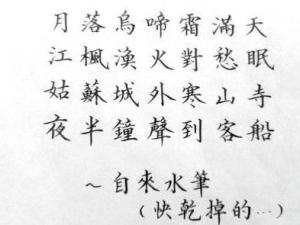 月落烏啼霜滿天
江楓漁火對愁眠
姑蘇城外寒山寺
夜半鐘聲到客船
~自來水筆
(快乾掉的…)